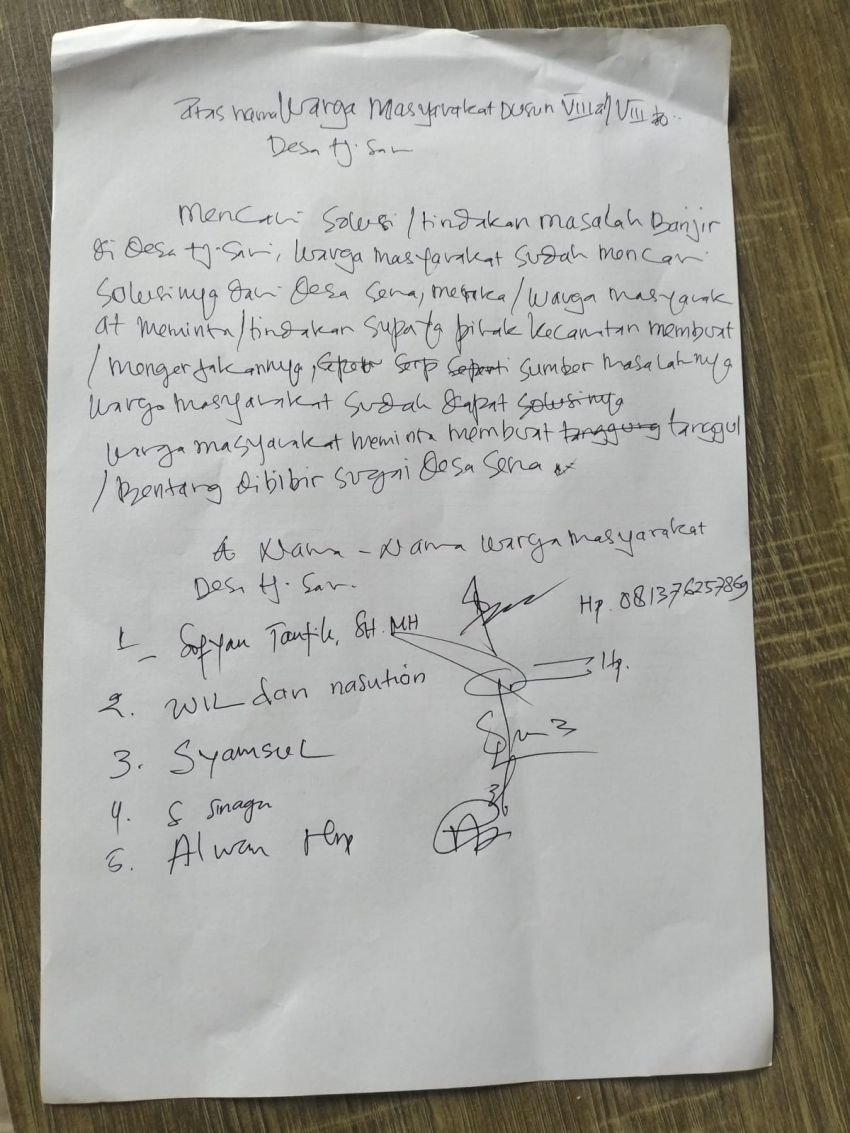 Atas nama Warga Masyarakat Dusun VIII a / VIII b..
Desa tj. Sari
Mencari Solusi / tindakan masalah Banjir
di Desa tj. Sari, Warga masyarakat sudah mencari
Solusinya dari Desa Sena, mereka / warga masyarak
at meminta / tindakan supaya pihak kecamatan membuat
/ mengerjakannya, sumber masalahnya
Warga masyarakat sudah dapat solusinya
Warga masyarakat meminta membuat tanggung tanggul
/ Bentang dibibir sugai Desa Sena
Nama - Nama warga masyarakat
Desa tj. Sari.
Hp. 081376257869
1 Sofyan Taufik, SH. MH
Hp.
2. WIL dan nasution
3. SyamsuL
4. S Sinaga
5. Alwan Hrp